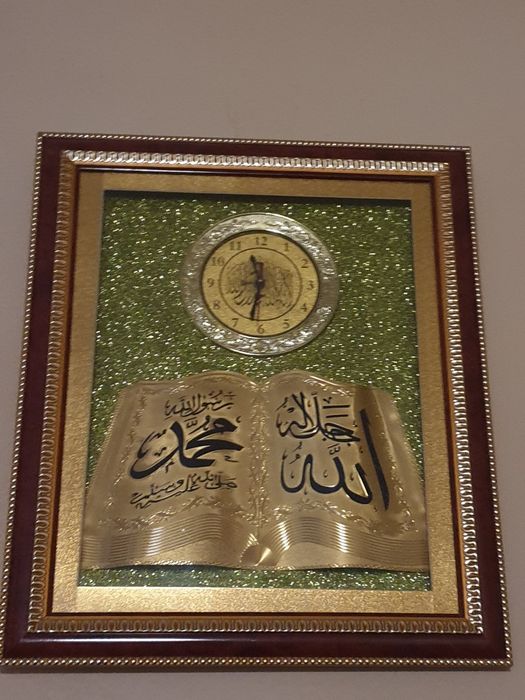 12
1
2
3
4
5
6
7
8
9
10
11
الله
جل جلاله
رسول الله
محمد
صلى الله عليه وسلم